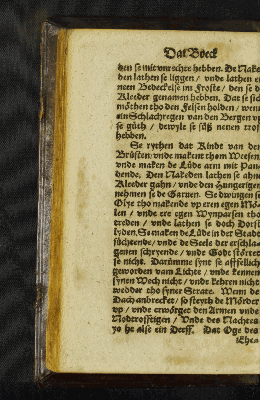 Dat Boeck
den se mit unrechte hebben. De Nake
den lathen se liggen / vnde lathen en
neen Bedeckelse im Froste / den se de
Kleeder genamen hebben. Dat se sick
möthen tho den Felsen holden / wenn
ein Schlachregen van den Bergen vp
se güth / dewyle se süß nenen trost
hebben.
Se rythen dat Kindt van den
Brüsten / vnde maken thom Wesen /
vnde maken de Lüde arm mit Pan-
dende. Den Nakeden lathen se ahne
Kleeder gahn / vnde den Hungerigen
nehmen se de Garuen. Se dwingen se
Olye tho makende vp eren egen Mö-
len / vnde ere egen Wynparsen tho
treden / vnde lathen se doch Dorst
lyden. Se maken de Lüde in der Stadt
süchtende / vnde de Seele der erschla-
genen schryende / vnde Godt störtet
se nicht. Darümme synt se affellich
geworden vam Lichte / vnde kennen
synen Wech nicht / vnde kehren nicht
wedder tho syner Strate. Wenn de
Dach anbrecket / so steyth de Mörder
vp / vnde erwörget den Armen vnde
Nodtrofftigen / Vnde des Nachtes
ys he alse ein Deeff. Dat Oge des